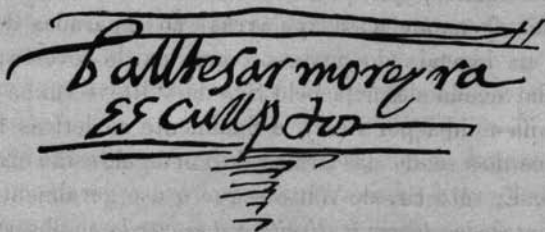 balltesar moreyra
ESCullptor